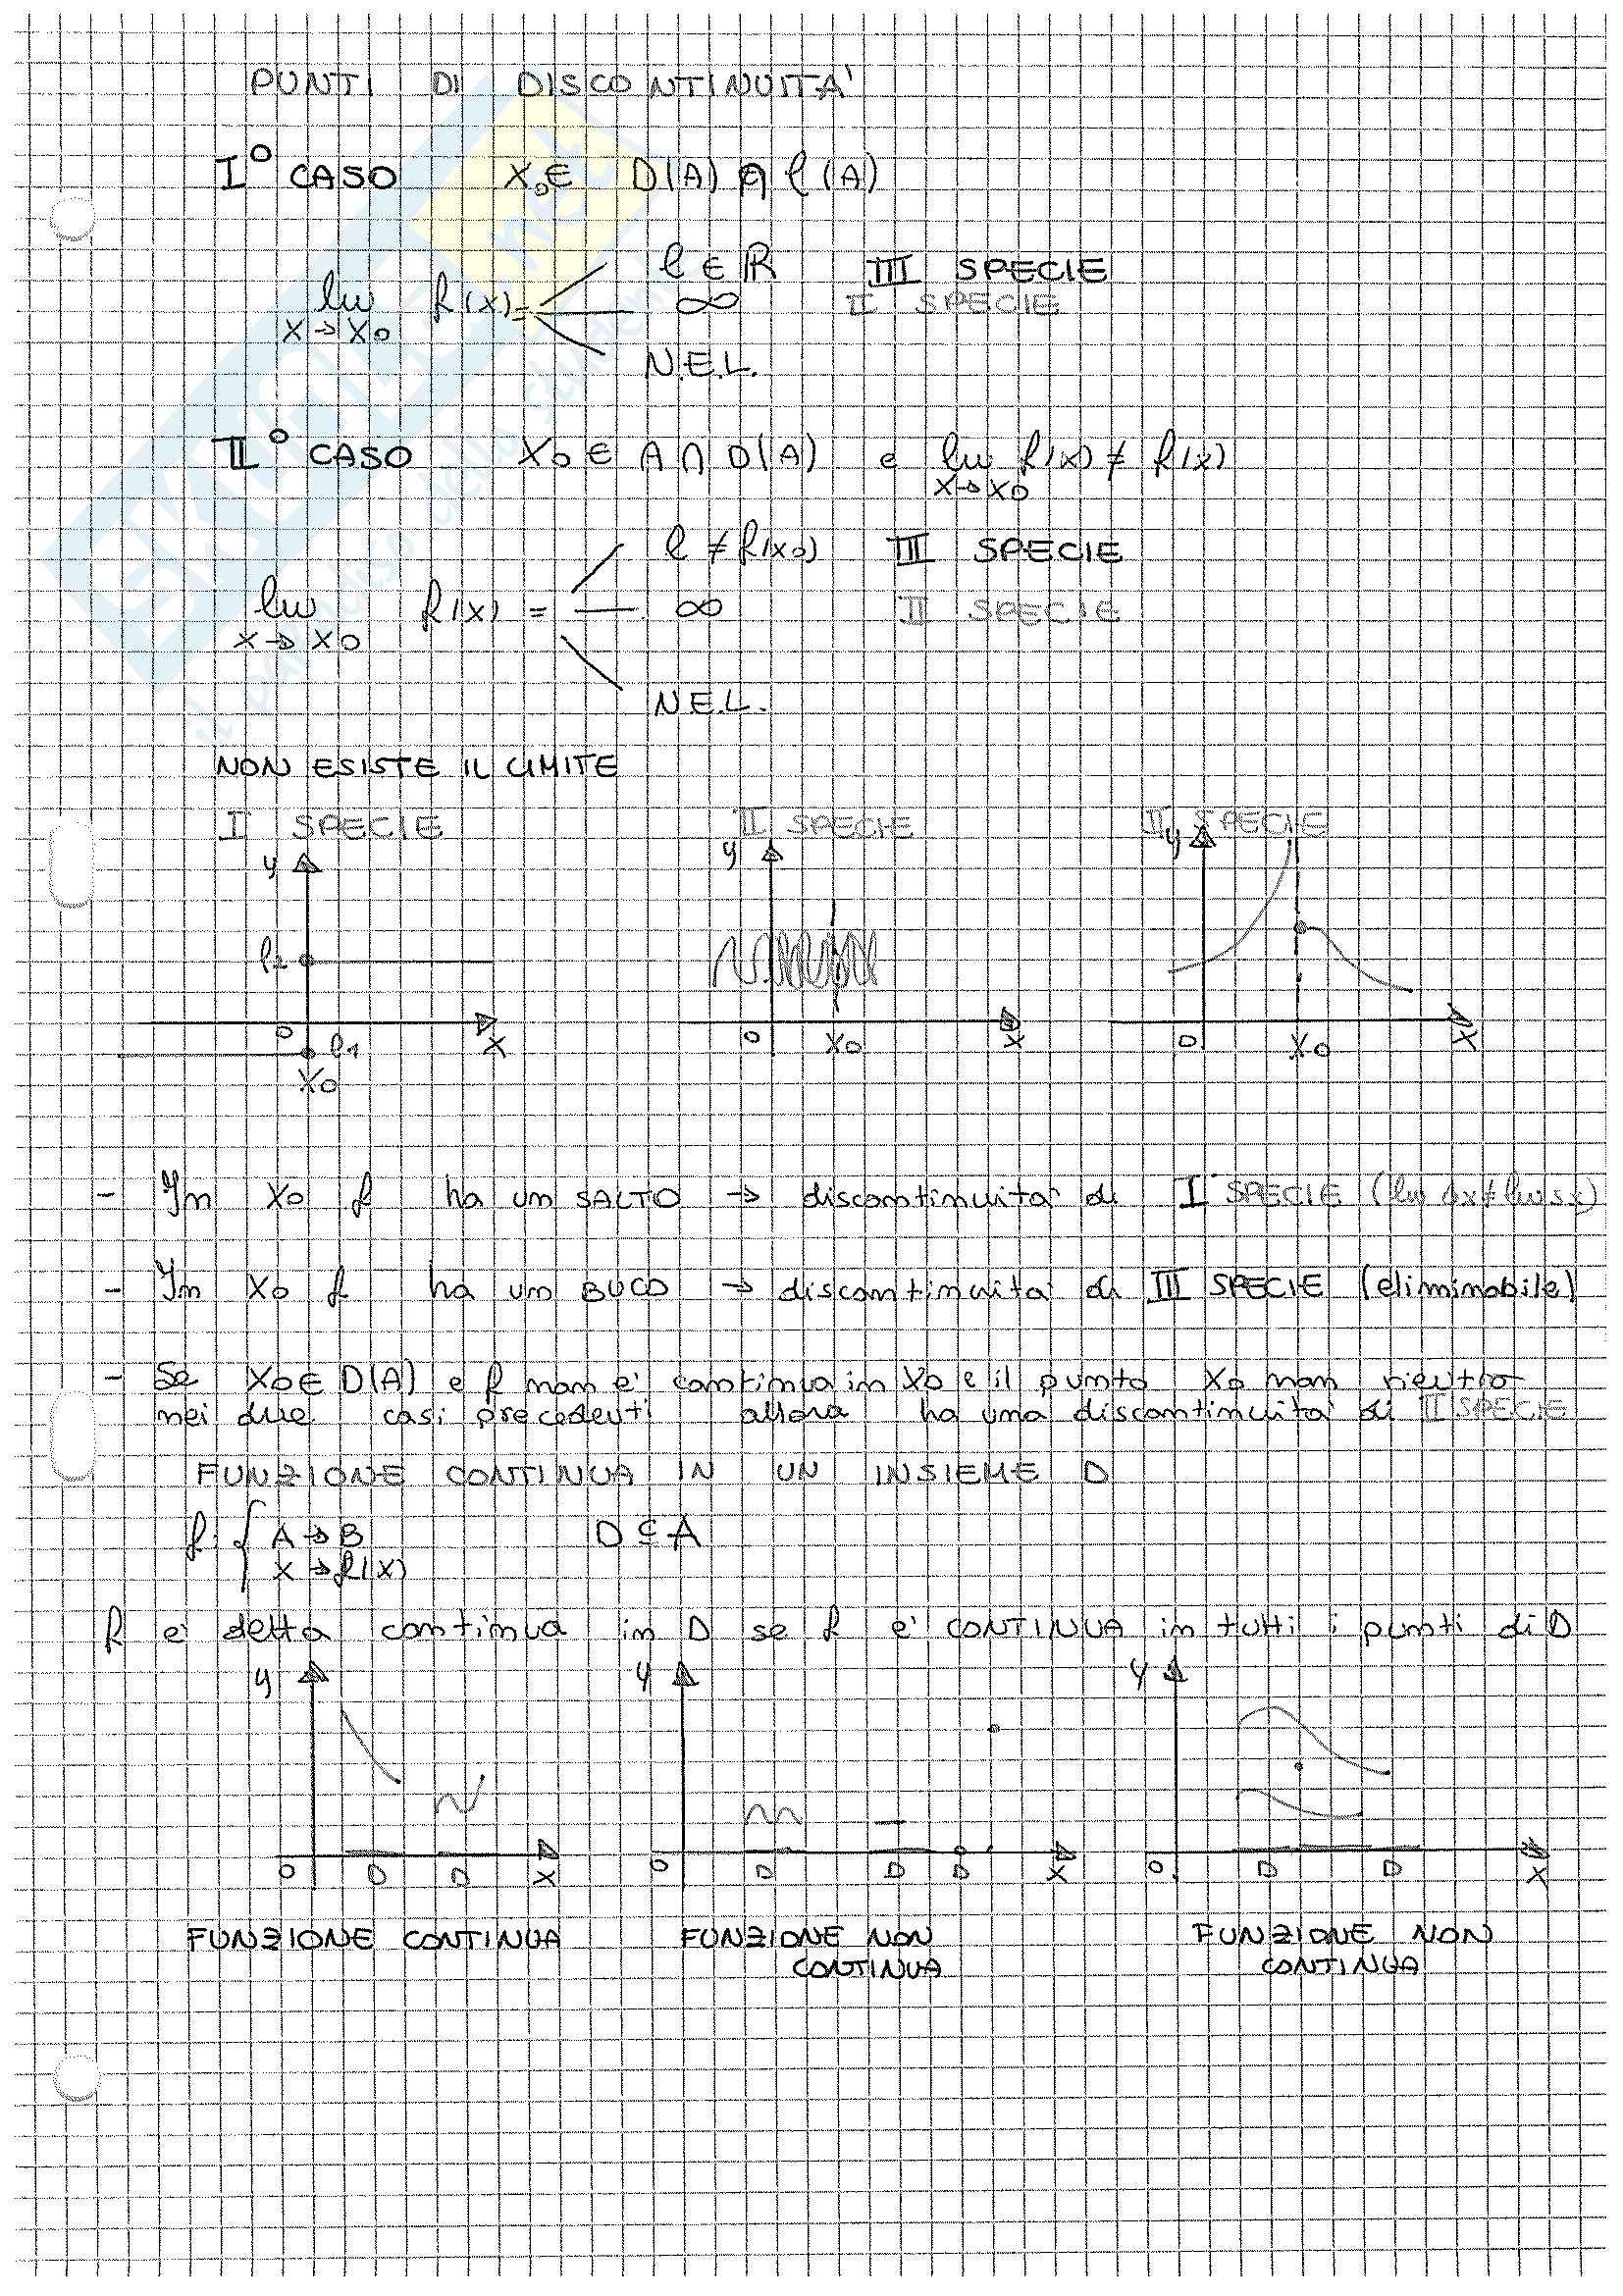 PUNTI DI DISCONTINUITA'
I° CASO X₀ ∈ D(A) ∩ C(A)
lim f(x) = l ∈ ℝ III SPECIE
x→x₀ ∞ II SPECIE
N.E.L.
II° CASO X₀ ∈ A ∩ D(A) e lim f(x) ≠ f(x)
x→x₀
l ≠ f(x₀) III SPECIE
lim f(x) = ∞ II SPECIE
x→x₀
N.E.L.
NON ESISTE IL LIMITE
I SPECIE II SPECIE II SPECIE
y y y
l₂
0 l₁ x 0 x₀ x 0 x₀ x
x₀
- In x₀ f ha un SALTO → discontinuità di I SPECIE (lim dx ≠ lim sx)
- In x₀ f ha un BUCO → discontinuità di III SPECIE (eliminabile)
- Se x₀ ∈ D(A) e f non è continua in x₀ e il punto x₀ non rientra
nei due casi precedenti allora ha una discontinuità di II SPECIE
FUNZIONE CONTINUA IN UN INSIEME D
f: { A → B D ⊆ A
x → f(x)
f è detta continua in D se f è CONTINUA in tutti i punti di D
y y y
0 D D x 0 D D D x 0 D D x
FUNZIONE CONTINUA FUNZIONE NON CONTINUA FUNZIONE NON CONTINUA